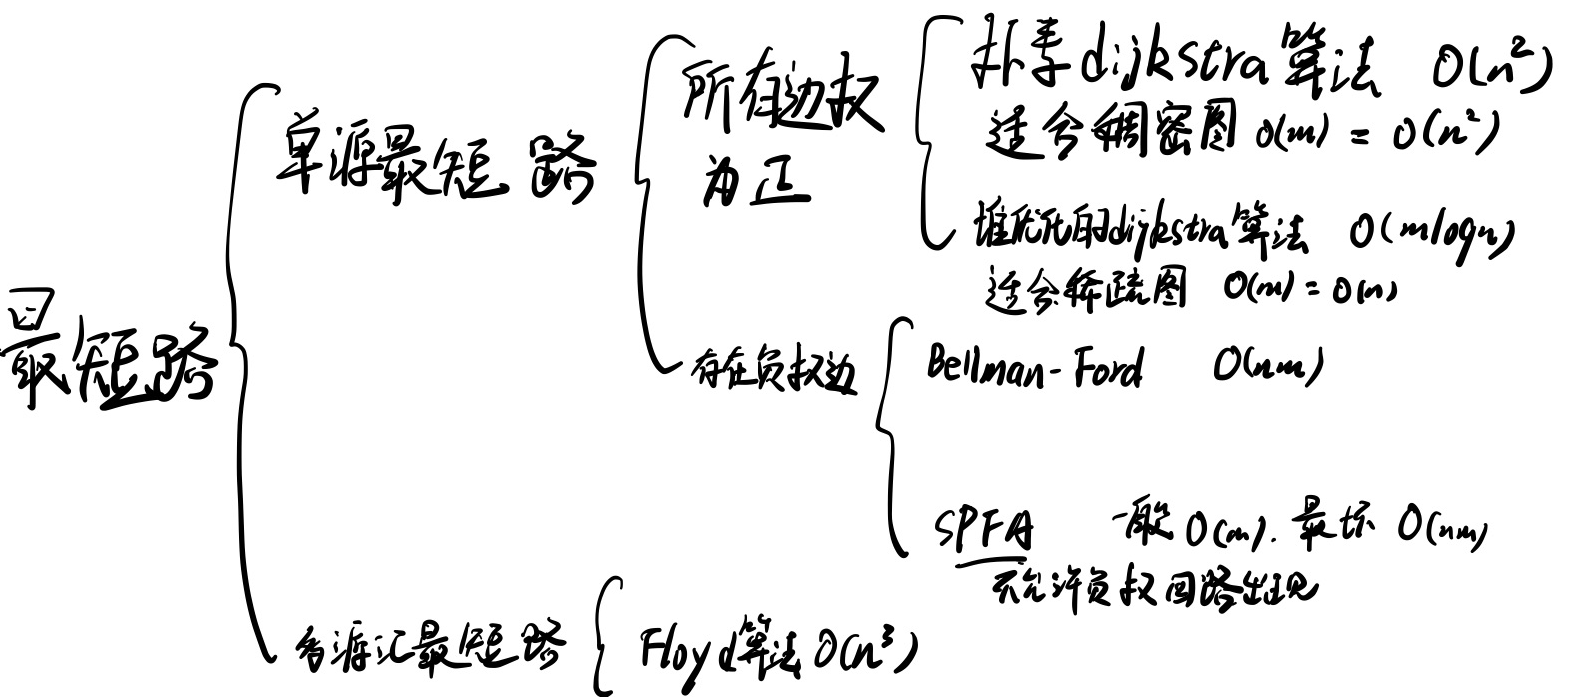 最短路
单源最短路
所有边权
为正
朴素dijkstra算法 O(n²)
适合稠密图 O(m) = O(n²)
堆优化的dijkstra算法 O(mlogn)
适合稀疏图 O(m) = O(n)
存在负权边
Bellman-Ford O(nm)
SPFA 一般 O(m). 最坏 O(nm)
不允许负权回路出现
多源汇最短路
Floyd算法 O(n³)